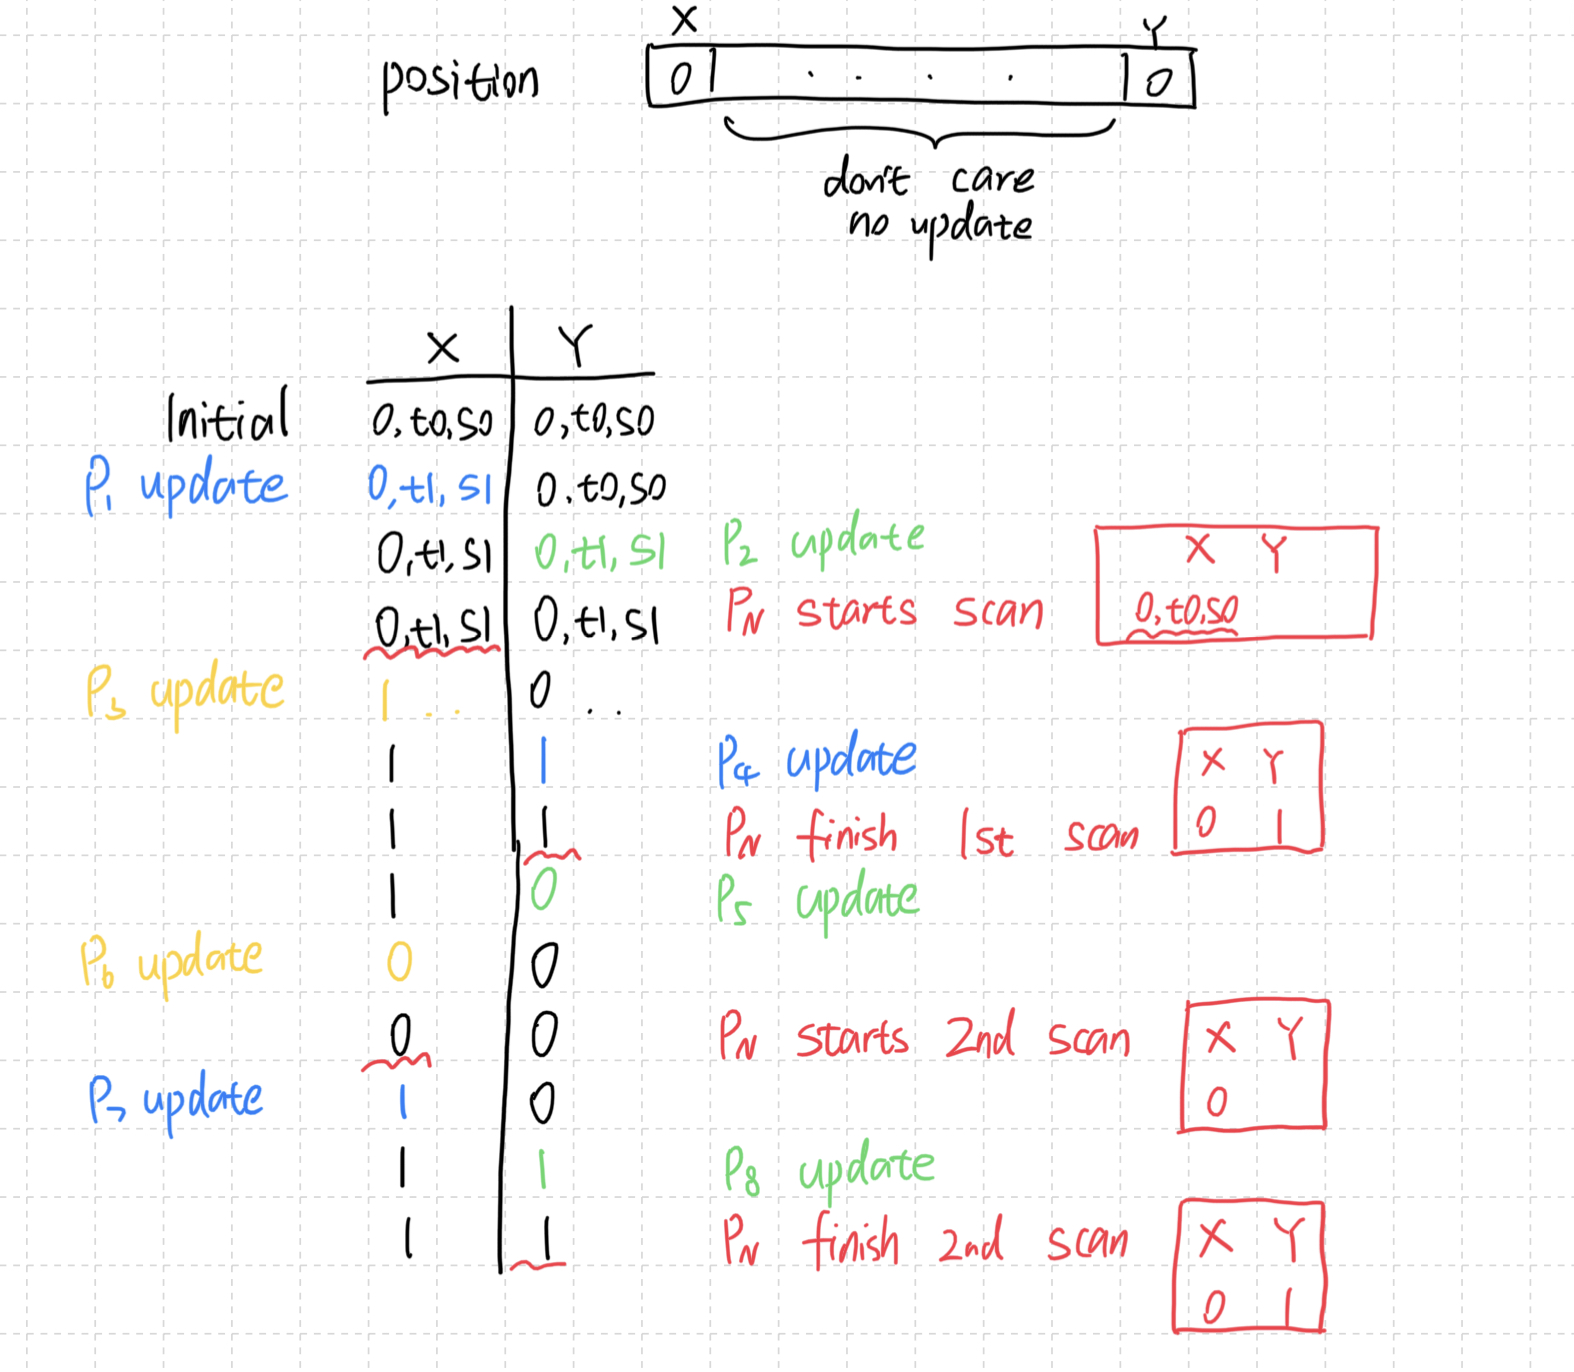 X Y
position 0 . . . . 0
don't care
no update
X Y
Initial 0,t0,s0 0,t0,s0
P1 update 0,t1,s1 0.t0,s0
0,t1,s1 0,t1,s1 P2 update
X Y
0,t1,s1 0,t1,s1 PN starts scan 0,t0,s0
P3 update 1 .. 0 ..
1 1 P4 update
X Y
1 1 PN finish 1st scan 0 1
1 0 P5 update
P6 update 0 0
0 0 PN starts 2nd scan X Y
P7 update 1 0 0
1 1 P8 update
1 1 PN finish 2nd scan X Y
0 1